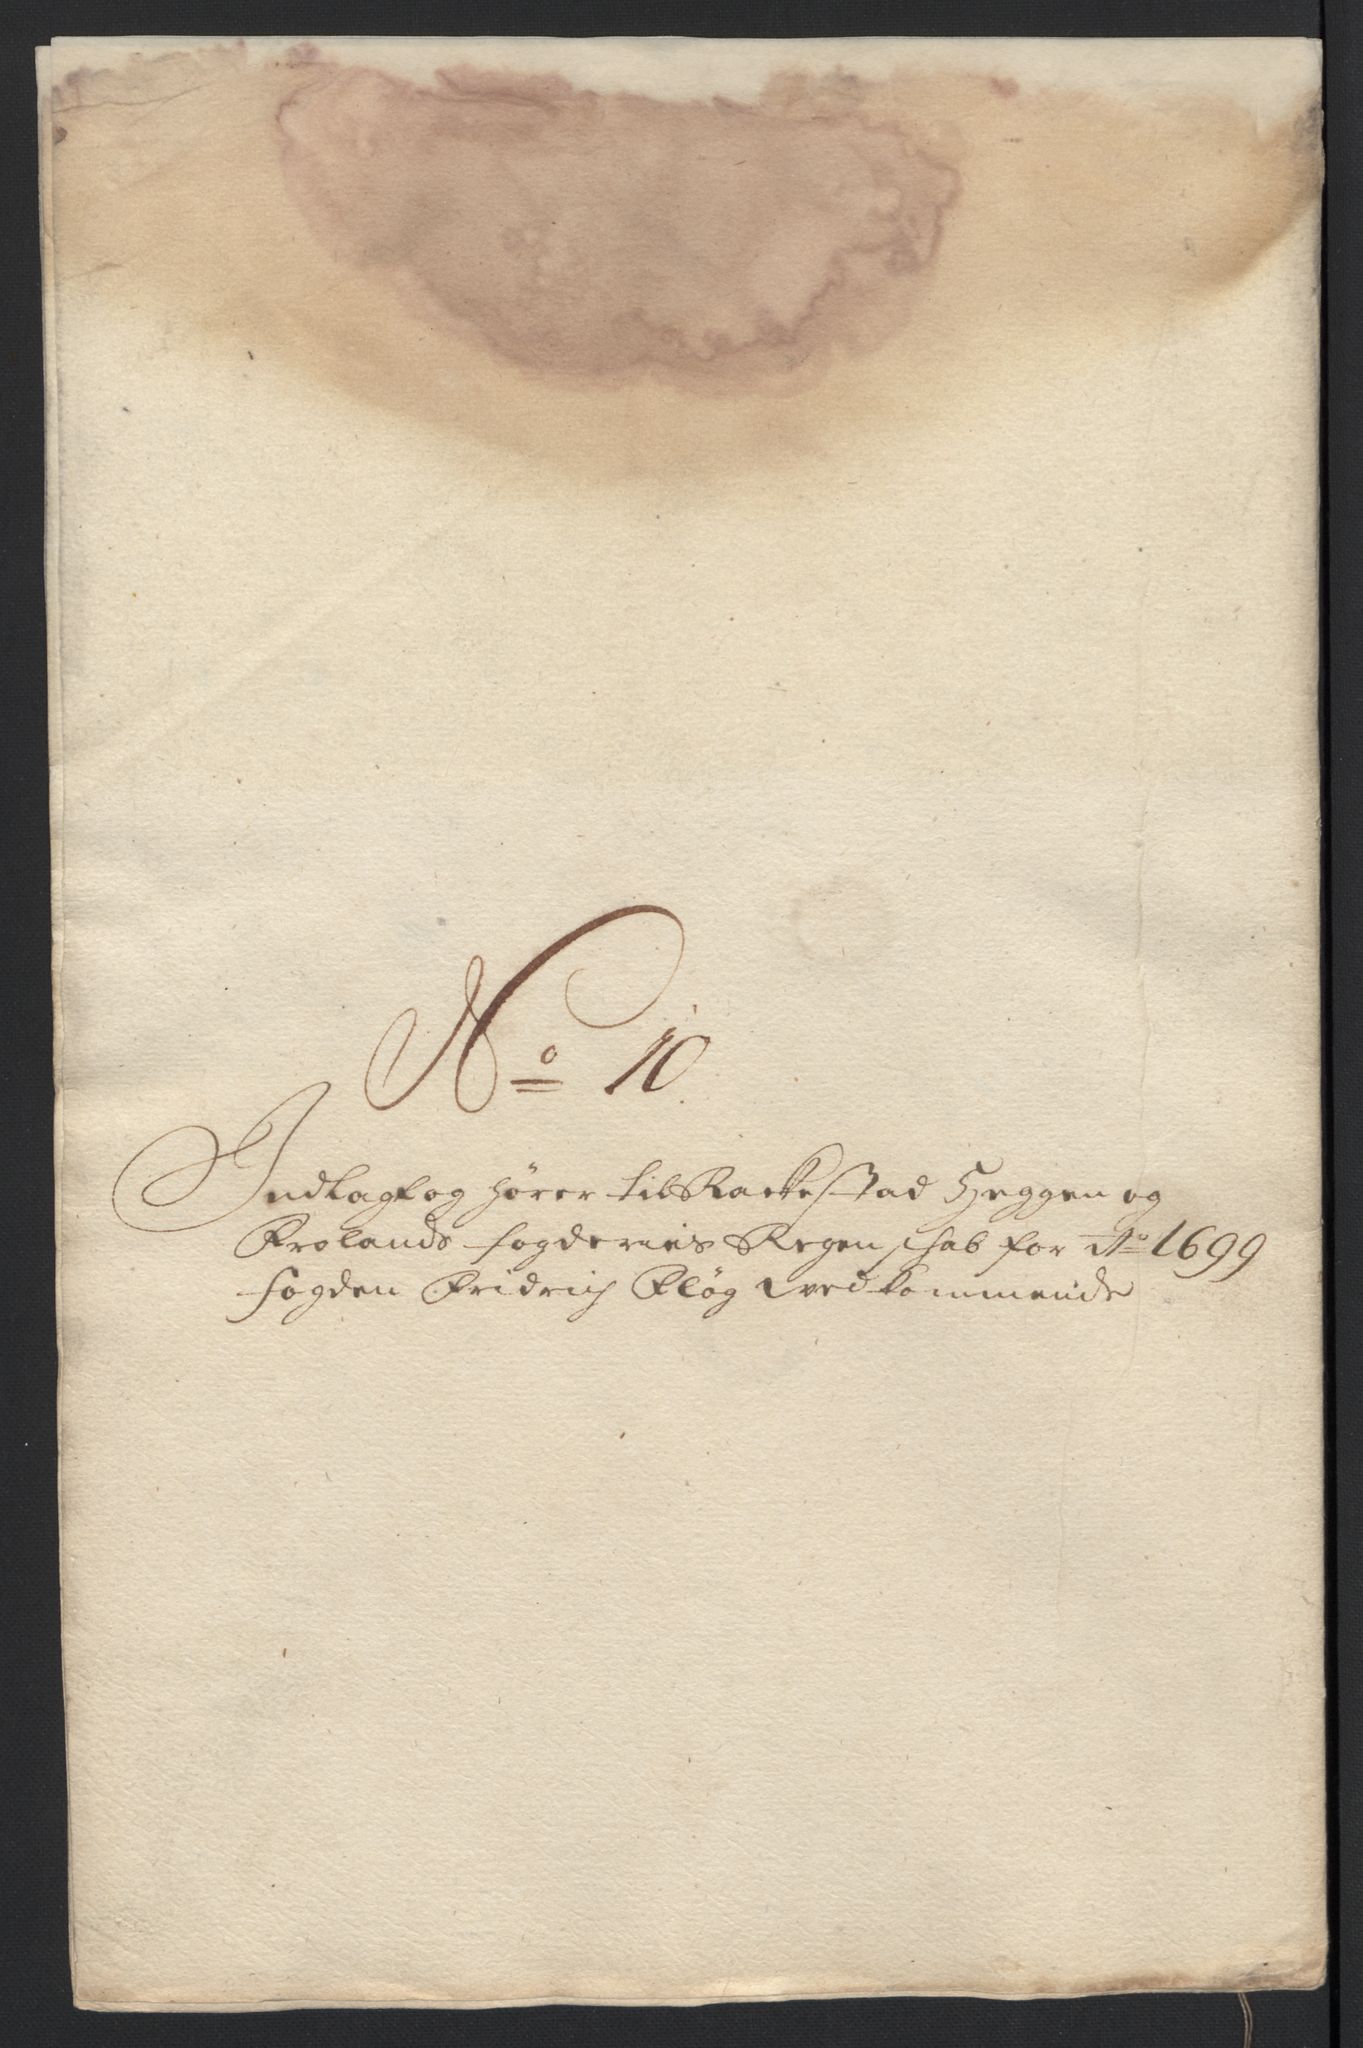 No 10
Indlagt og hører til Rackestad Heggen og
Frølands fogderies Regenschab for Ao 1699
fogden Fridrich Pløg vedkommende